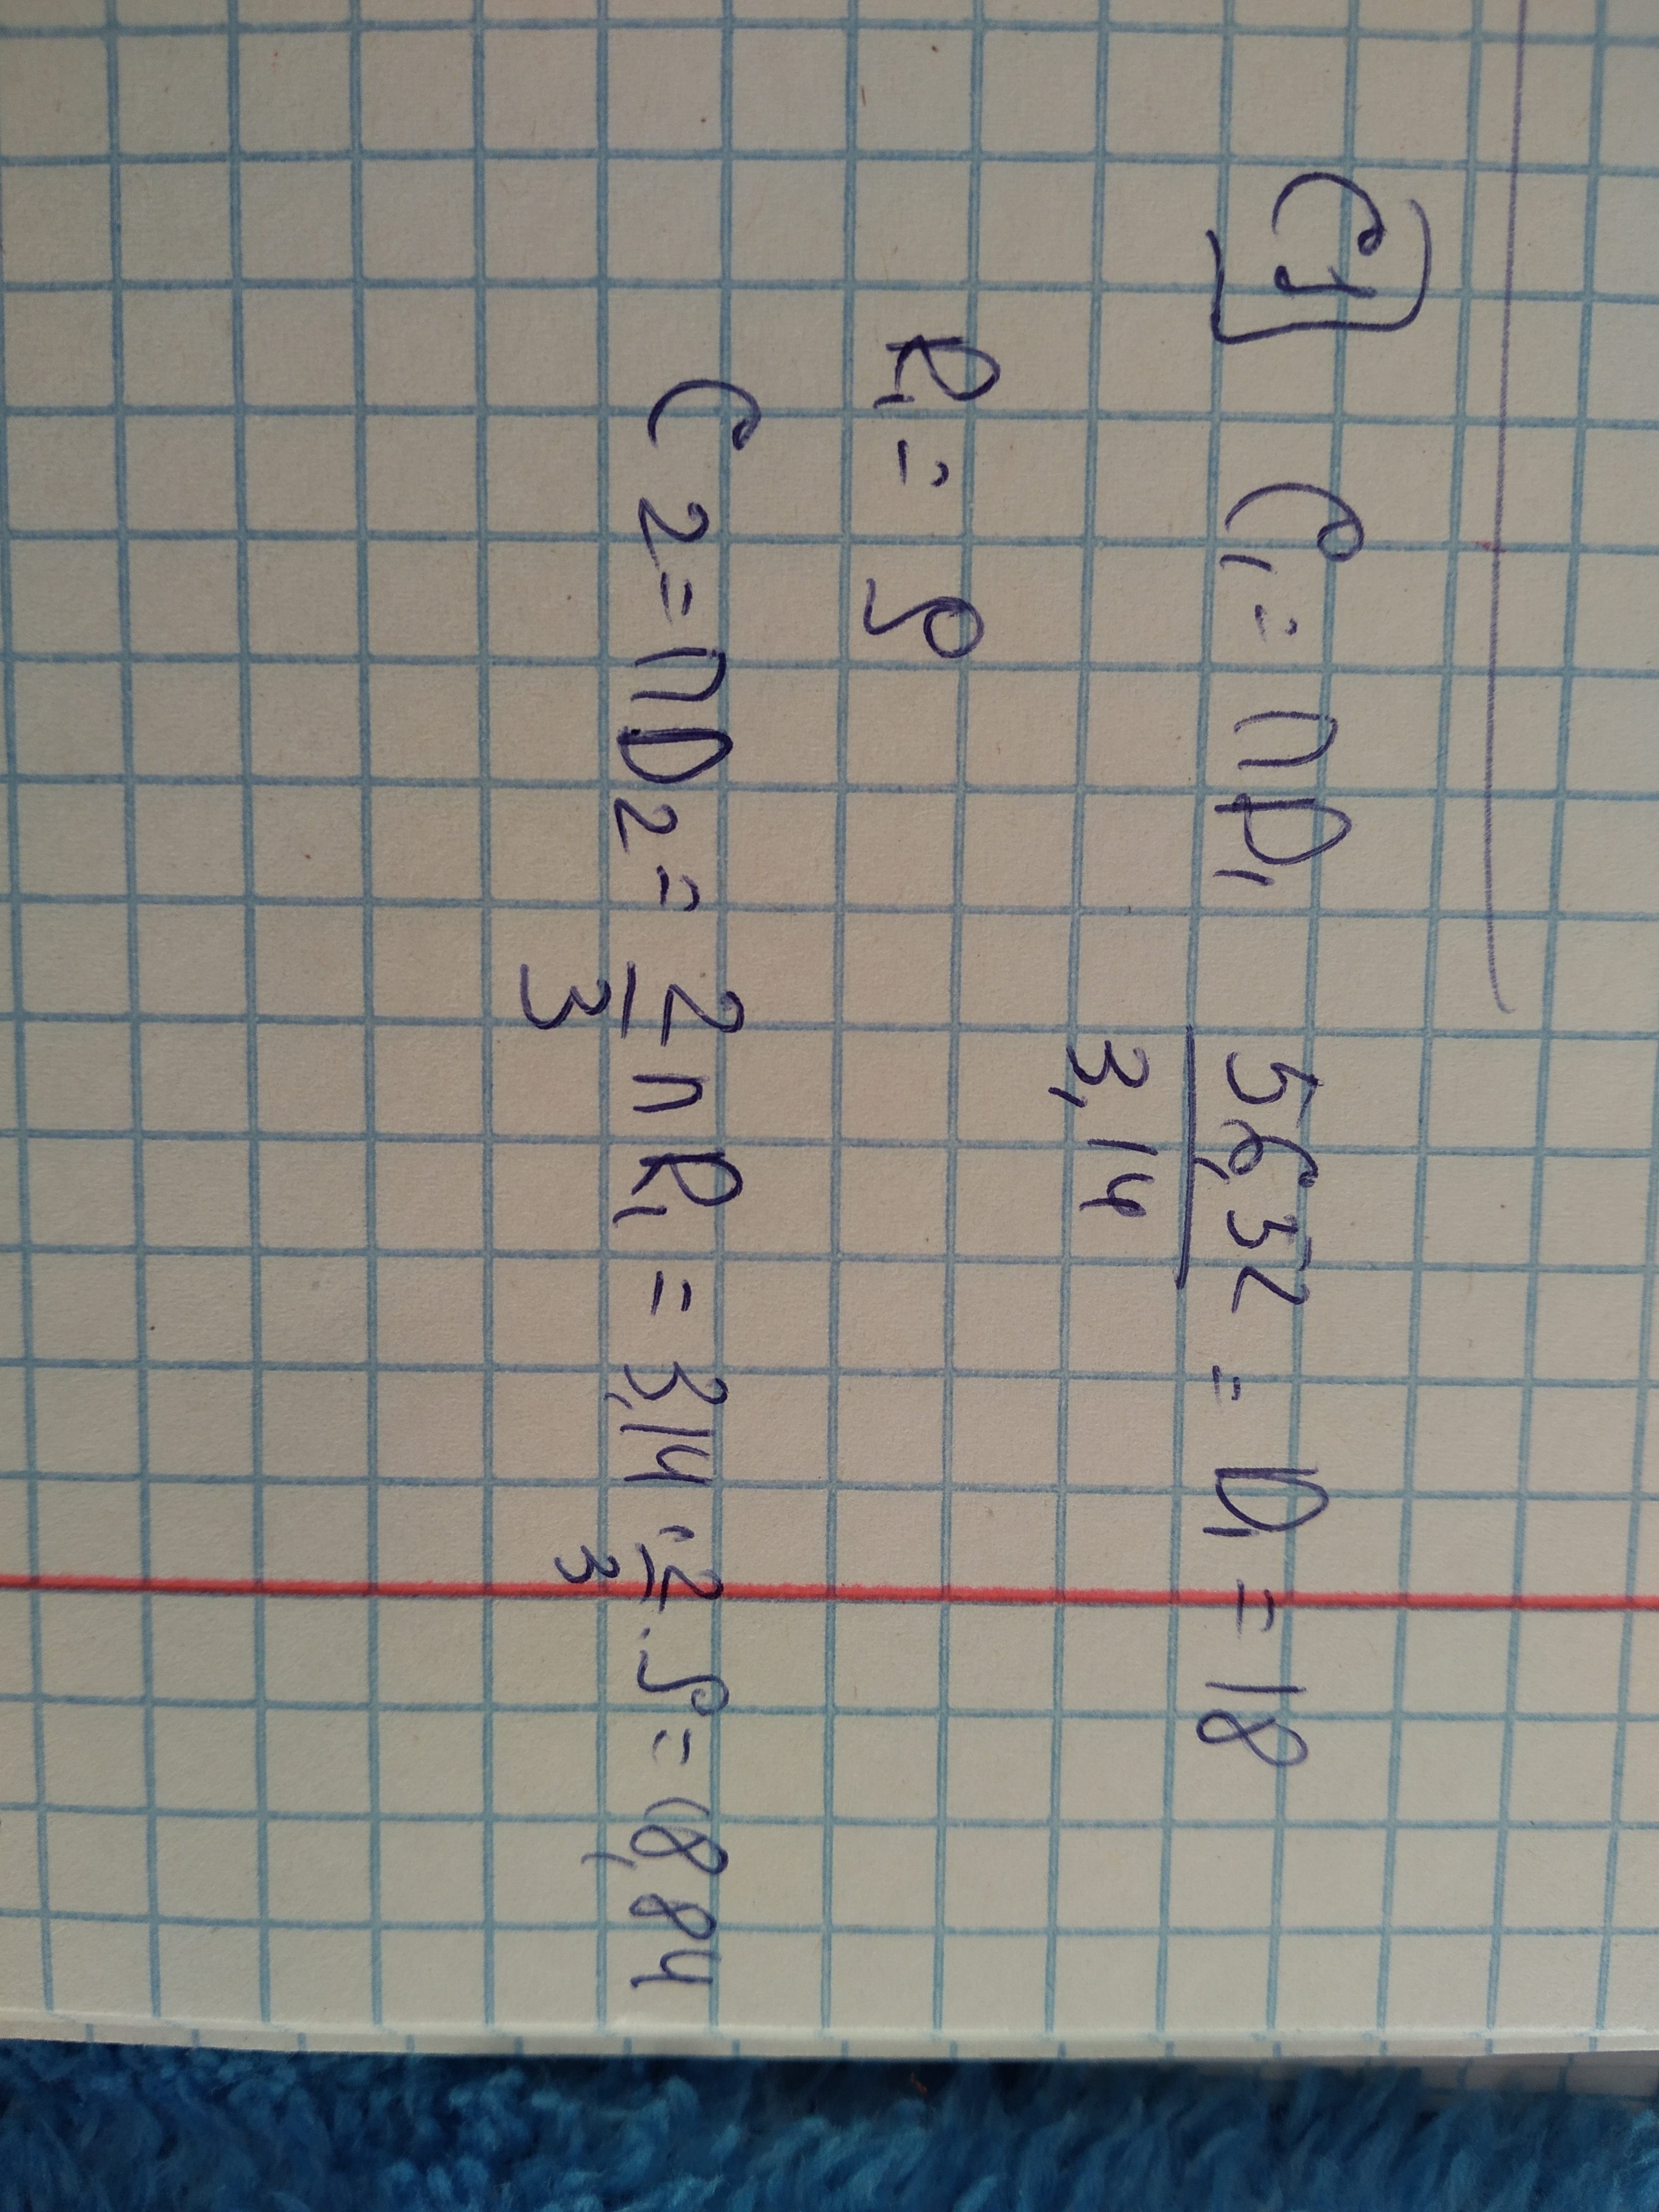 C1 C₁ = πD₁ 56,52/3,14 = D₁ = 18
R₁ = 9
C2 = πD₂ = 2/3 πR₁ = 3,14 · 2/3 · 9 = 18,84